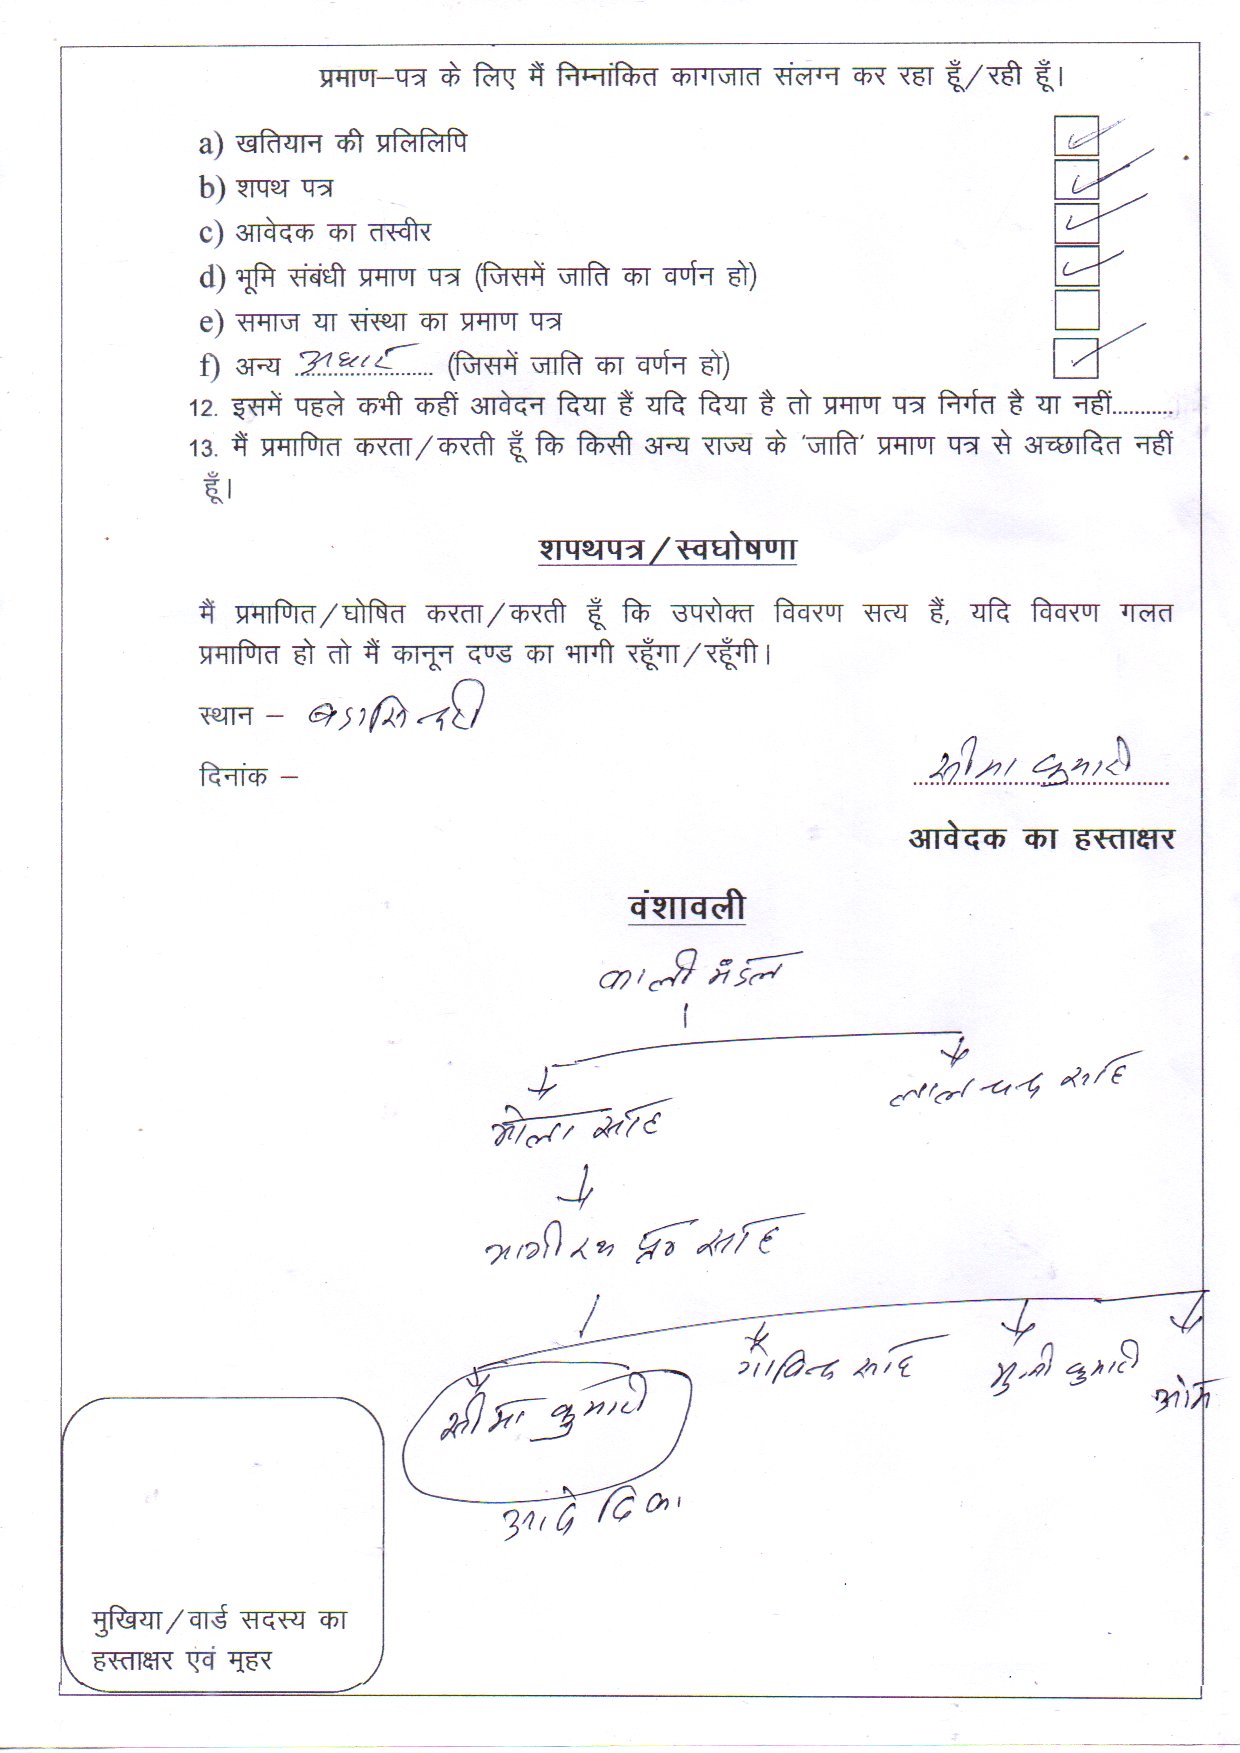 प्रमाण–पत्र के लिए मैं निम्नांकित कागजात संलग्न कर रहा हूँ/रही हूँ।
a) खतियान की प्रलिलिपि
b) शपथ पत्र
c) आवेदक का तस्वीर
d) भूमि संबंधी प्रमाण पत्र (जिसमें जाति का वर्णन हो)
e) समाज या संस्था का प्रमाण पत्र
f) अन्य आधार (जिसमें जाति का वर्णन हो)
12. इसमें पहले कभी कहीं आवेदन दिया हैं यदि दिया है तो प्रमाण पत्र निर्गत है या नहीं...........
13. मैं प्रमाणित करता/करती हूँ कि किसी अन्य राज्य के 'जाति' प्रमाण पत्र से अच्छादित नहीं
हूँ।
शपथपत्र/स्वघोषणा
मैं प्रमाणित/घोषित करता/करती हूँ कि उपरोक्त विवरण सत्य हैं, यदि विवरण गलत
प्रमाणित हो तो मैं कानून दण्ड का भागी रहूँगा/रहूँगी।
स्थान –
दिनांक –
सीमा कुमारी
आवेदक का हस्ताक्षर
वंशावली
काली मंडल
भोला साह लाल चन्द साह
भागीरथ साह
सीमा कुमारी गोविन्द साह कुमारी
मुखिया/वार्ड सदस्य का
हस्ताक्षर एवं मुहर